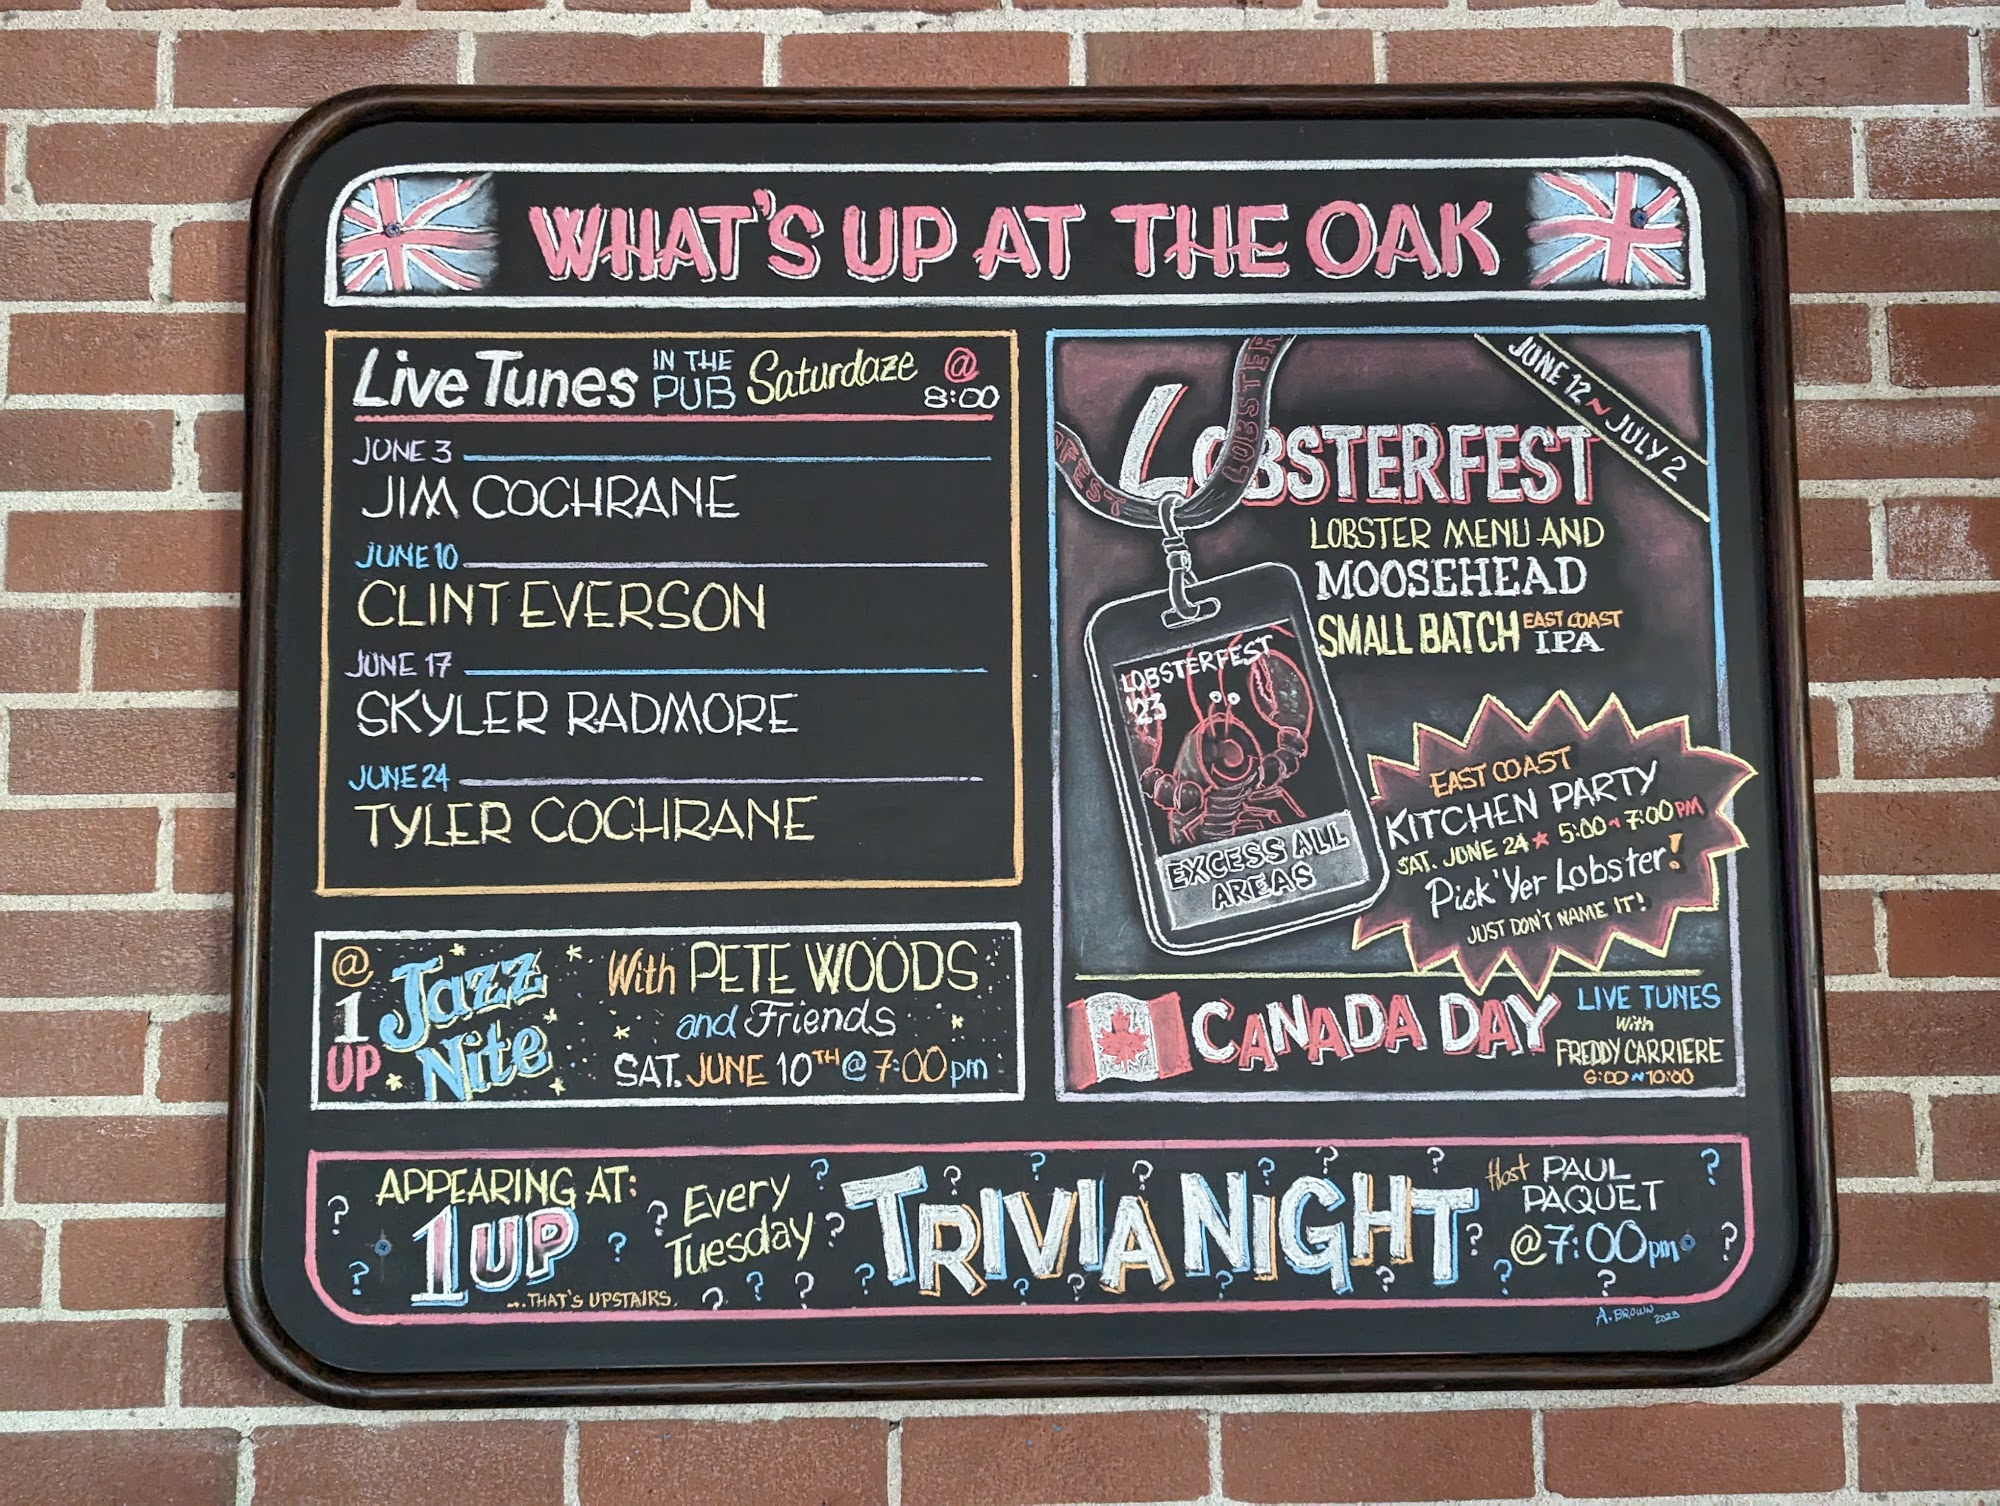 WHAT'S UP AT THE OAK
Live Tunes IN THE PUB Saturdaze @ 8:00
JUNE 3
JIM COCHRANE
JUNE 10
CLINT EVERSON
JUNE 17
SKYLER RADMORE
JUNE 24
TYLER COCHRANE
@ 1 UP
Jazz
Nite
With PETE WOODS
and Friends
SAT. JUNE 10TH @ 7:00pm
JUNE 12 ~ JULY 2
LOBSTER
OFEST
LOBSTER
LOBSTERFEST
LOBSTER MENU AND
MOOSEHEAD
SMALL BATCH EAST COAST IPA
LOBSTERFEST
'23
EXCESS ALL
AREAS
EAST COAST
KITCHEN PARTY
SAT. JUNE 24 ★ 5:00 ~ 7:00 PM
Pick 'Yer Lobster!
JUST DON'T NAME IT!
CANADA DAY
LIVE TUNES
With
FREDDY CARRIERE
6:00 ~ 10:00
APPEARING AT:
1UP
...THAT'S UPSTAIRS.
Every
Tuesday
TRIVIA NIGHT
Host PAUL
PAQUET
@7:00pm
A. BROWN
2023